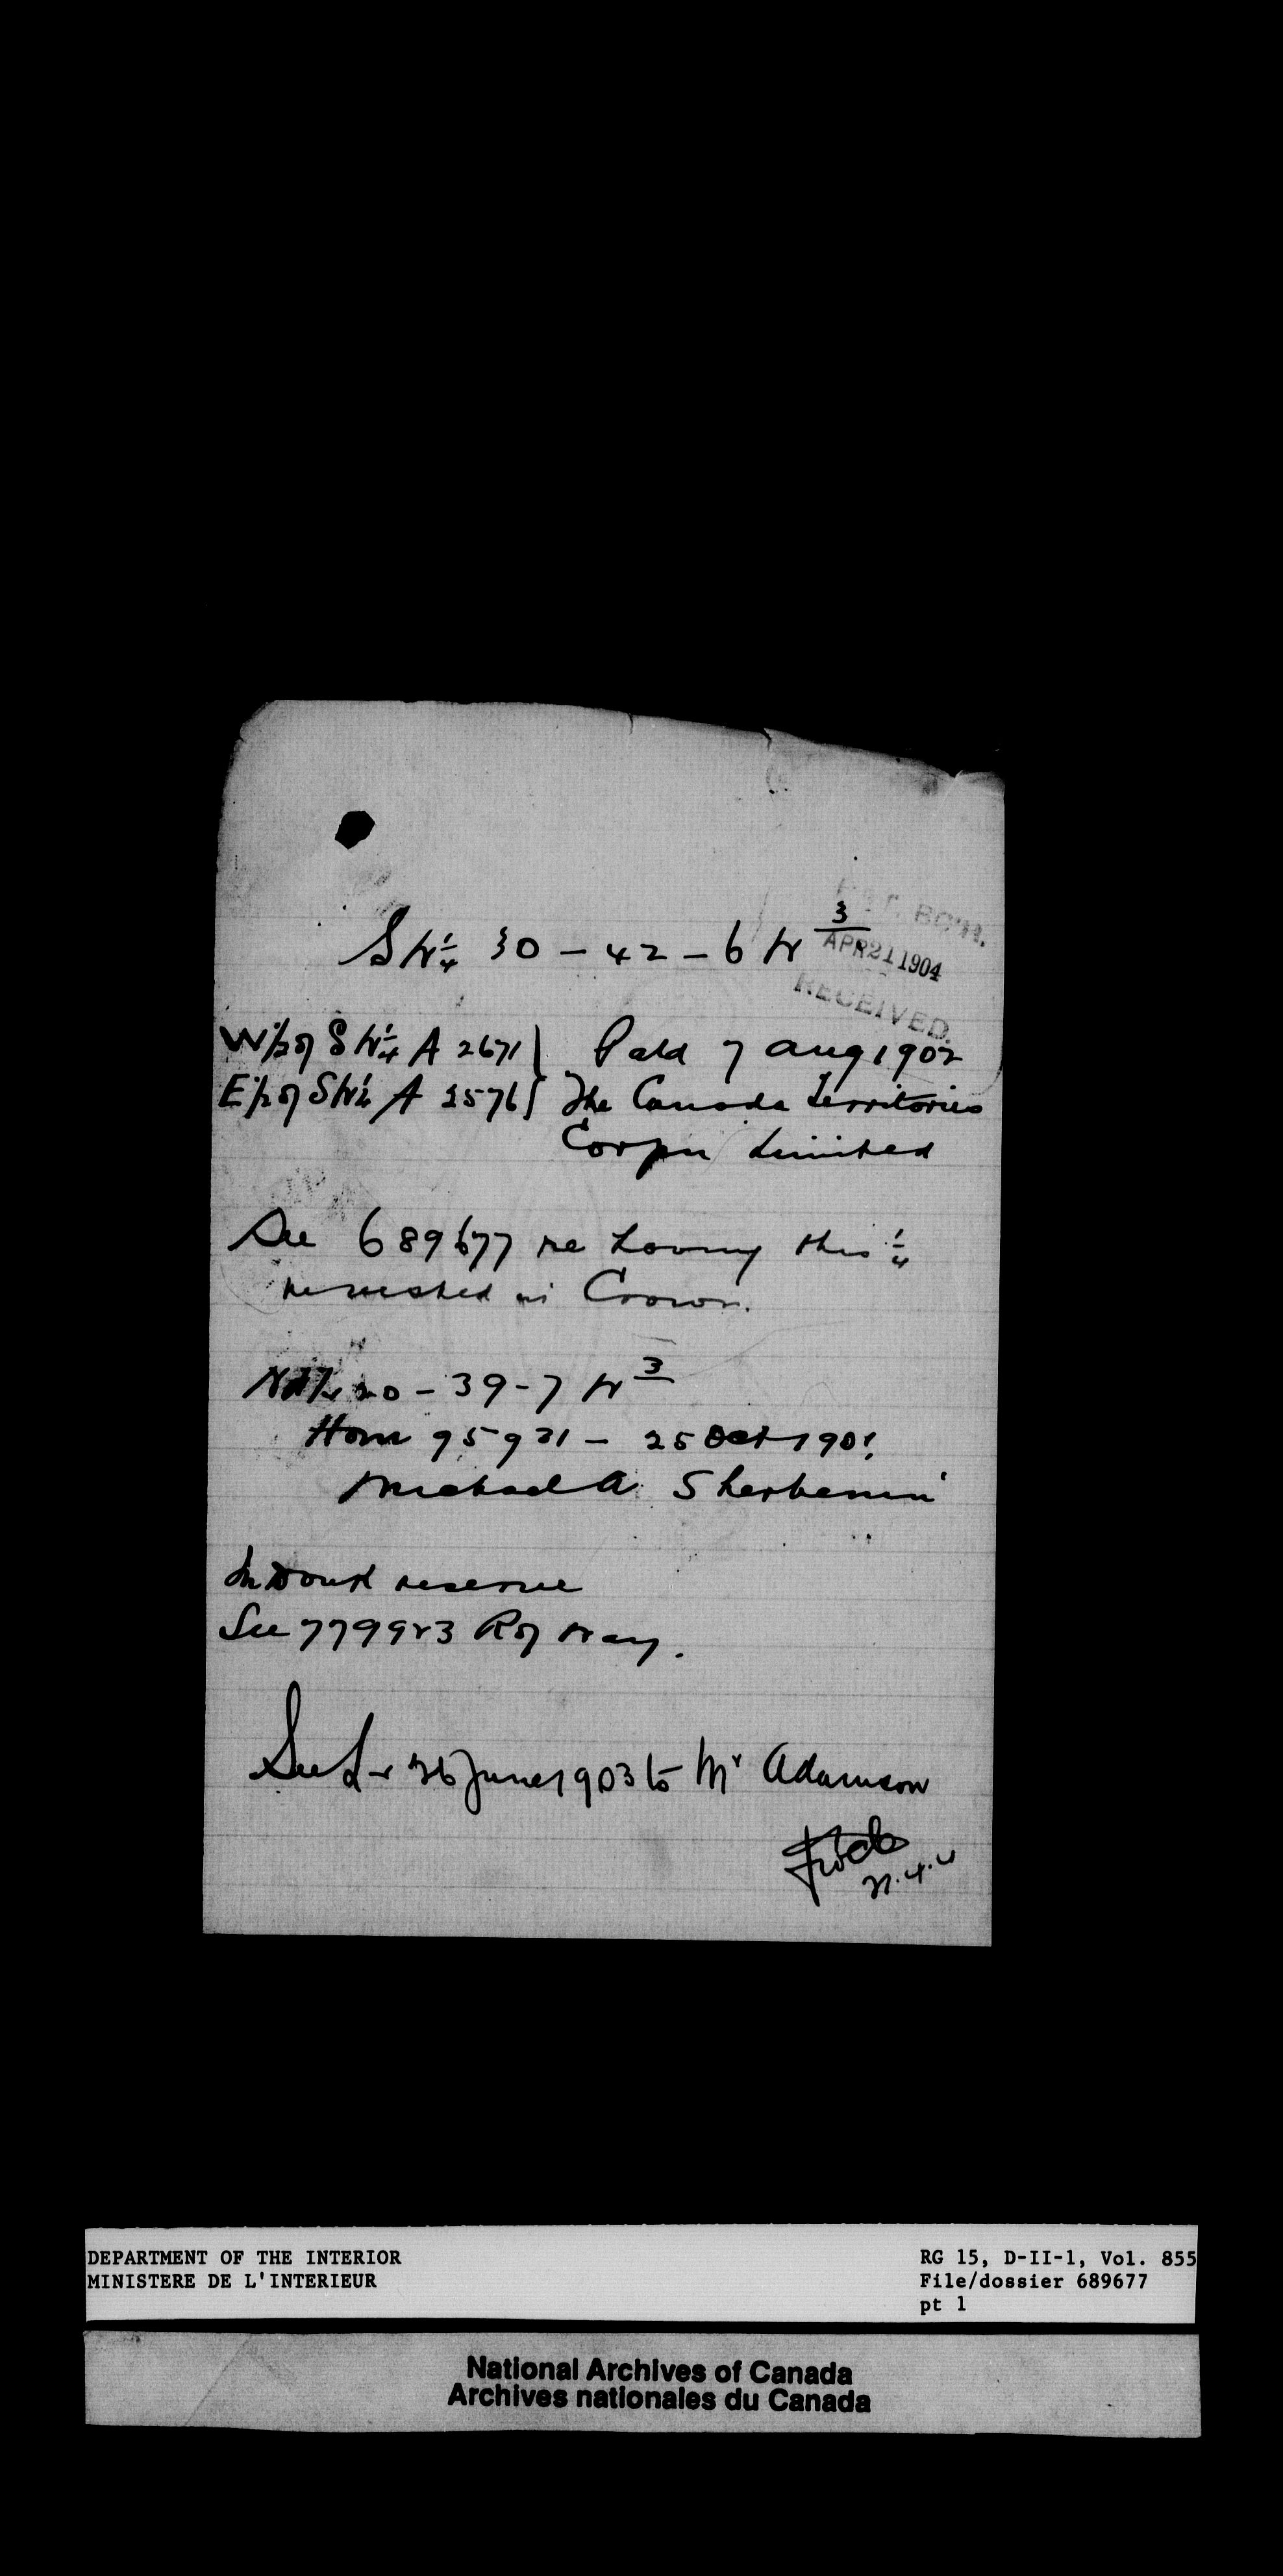 SW¼ 30 – 42 – 6 W 3
APR 21 1904
RECEIVED.
W½ of SW¼ A 2671 } Patd 7 Aug 1902
E½ of SW¼ A 2576 } The Canada Territories
Corpn Limited
See 689677 re having this ¼
revested in Crown.
20 – 39 – 7 W 3
Hom 95931 – 25 Oct 1901
Michael A Sherbenin
In Douk reserve
See 779923 R of Way.
See Lr 26 June 1903 to Mr Adamson
21.4.4
DEPARTMENT OF THE INTERIOR
MINISTERE DE L'INTERIEUR
RG 15, D-II-1, Vol. 855
File/dossier 689677
pt 1
National Archives of Canada
Archives nationales du Canada